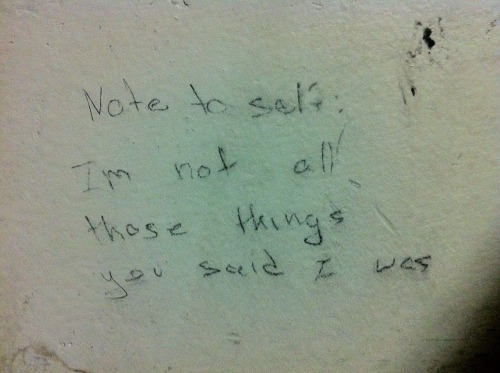 Note to self:
Im not all
those things
you said I was